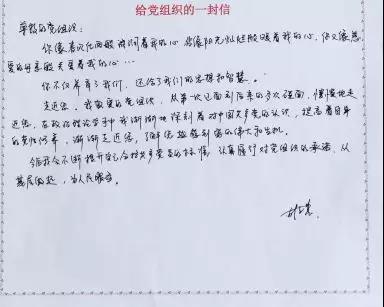 给党组织的一封信
尊敬的党组织:
你像春风化雨般滋润着我的心,你像阳光灿烂般暖着我的心,你又像慈
爱的母亲般关爱着我的心…
你不仅养育了我们,还给了我们的思想和智慧。
走近您,我敬爱的党组织,从第一次见面到后来的多次碰面,慢慢地走
近您,在政治理论学习中我渐渐地深刻着对中国共产党的认识,提高着自身
的党性修养,渐渐走近您,了解您
的伟大和
今后我会不断提升自己合格共产党员的标准,认真履行对党组织的承诺,从
基层做起,为人民服务。